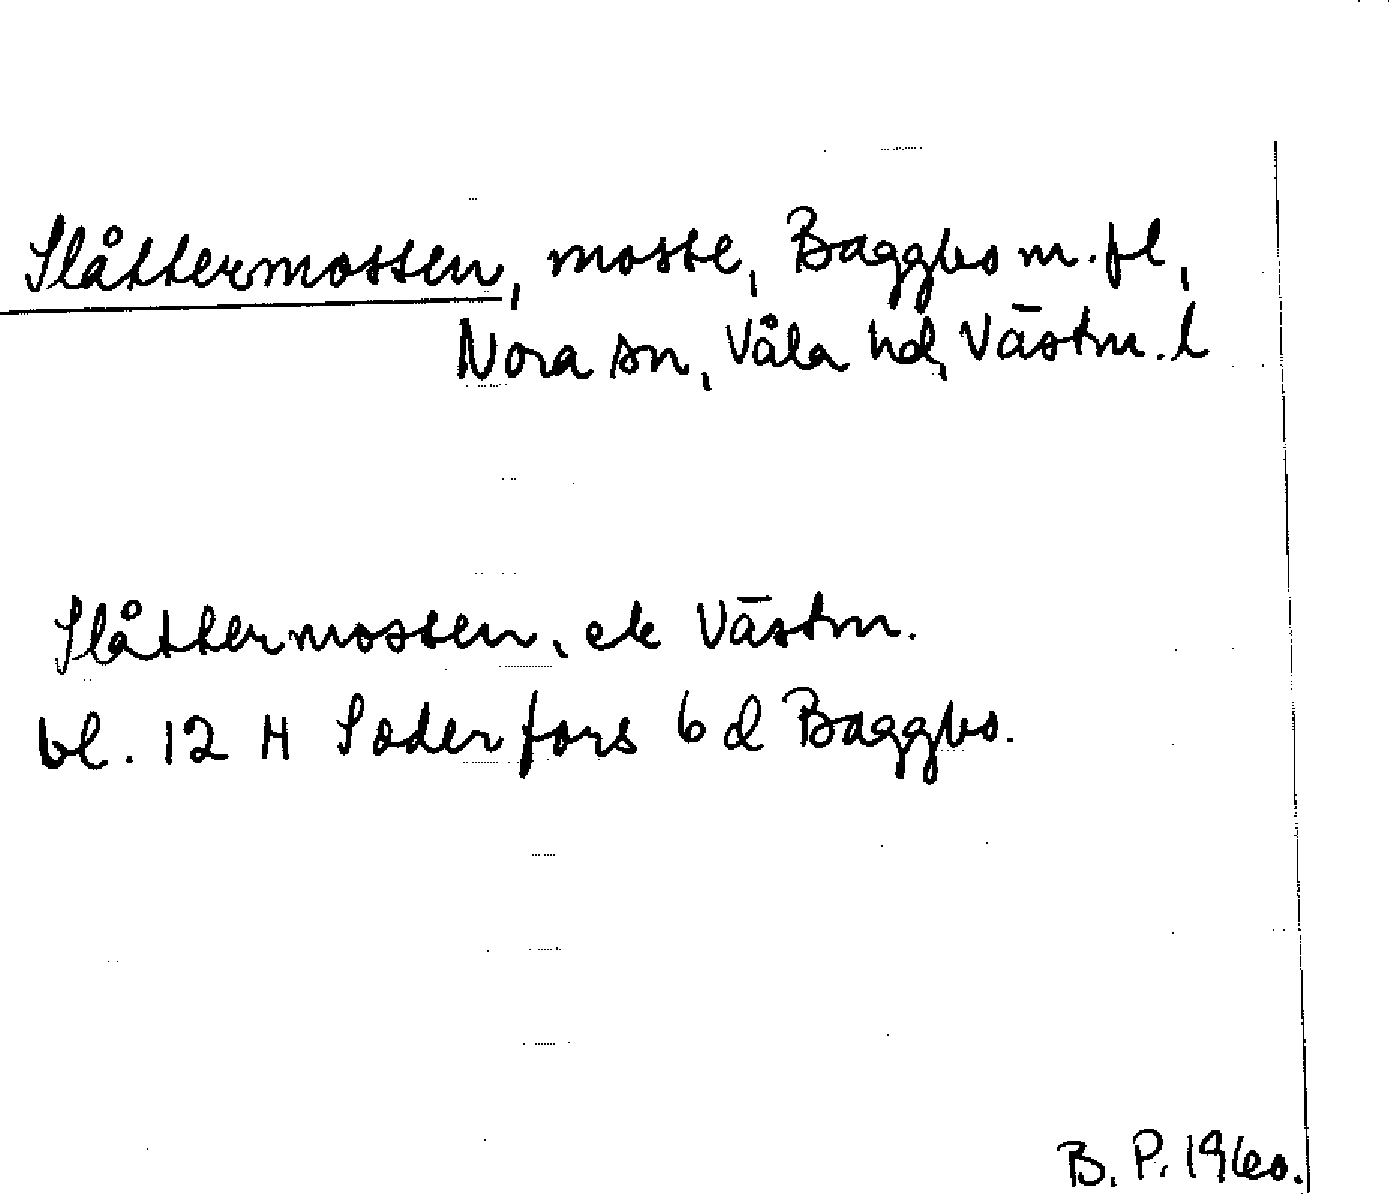 Slåttermossen, mosse, Baggbo m.fl,
Nora sn, Våla hd, Västm. l
Slåttermossen, ek Västm.
bl. 12 H Söderfors 6 d Baggbo.
B. P. 1960.